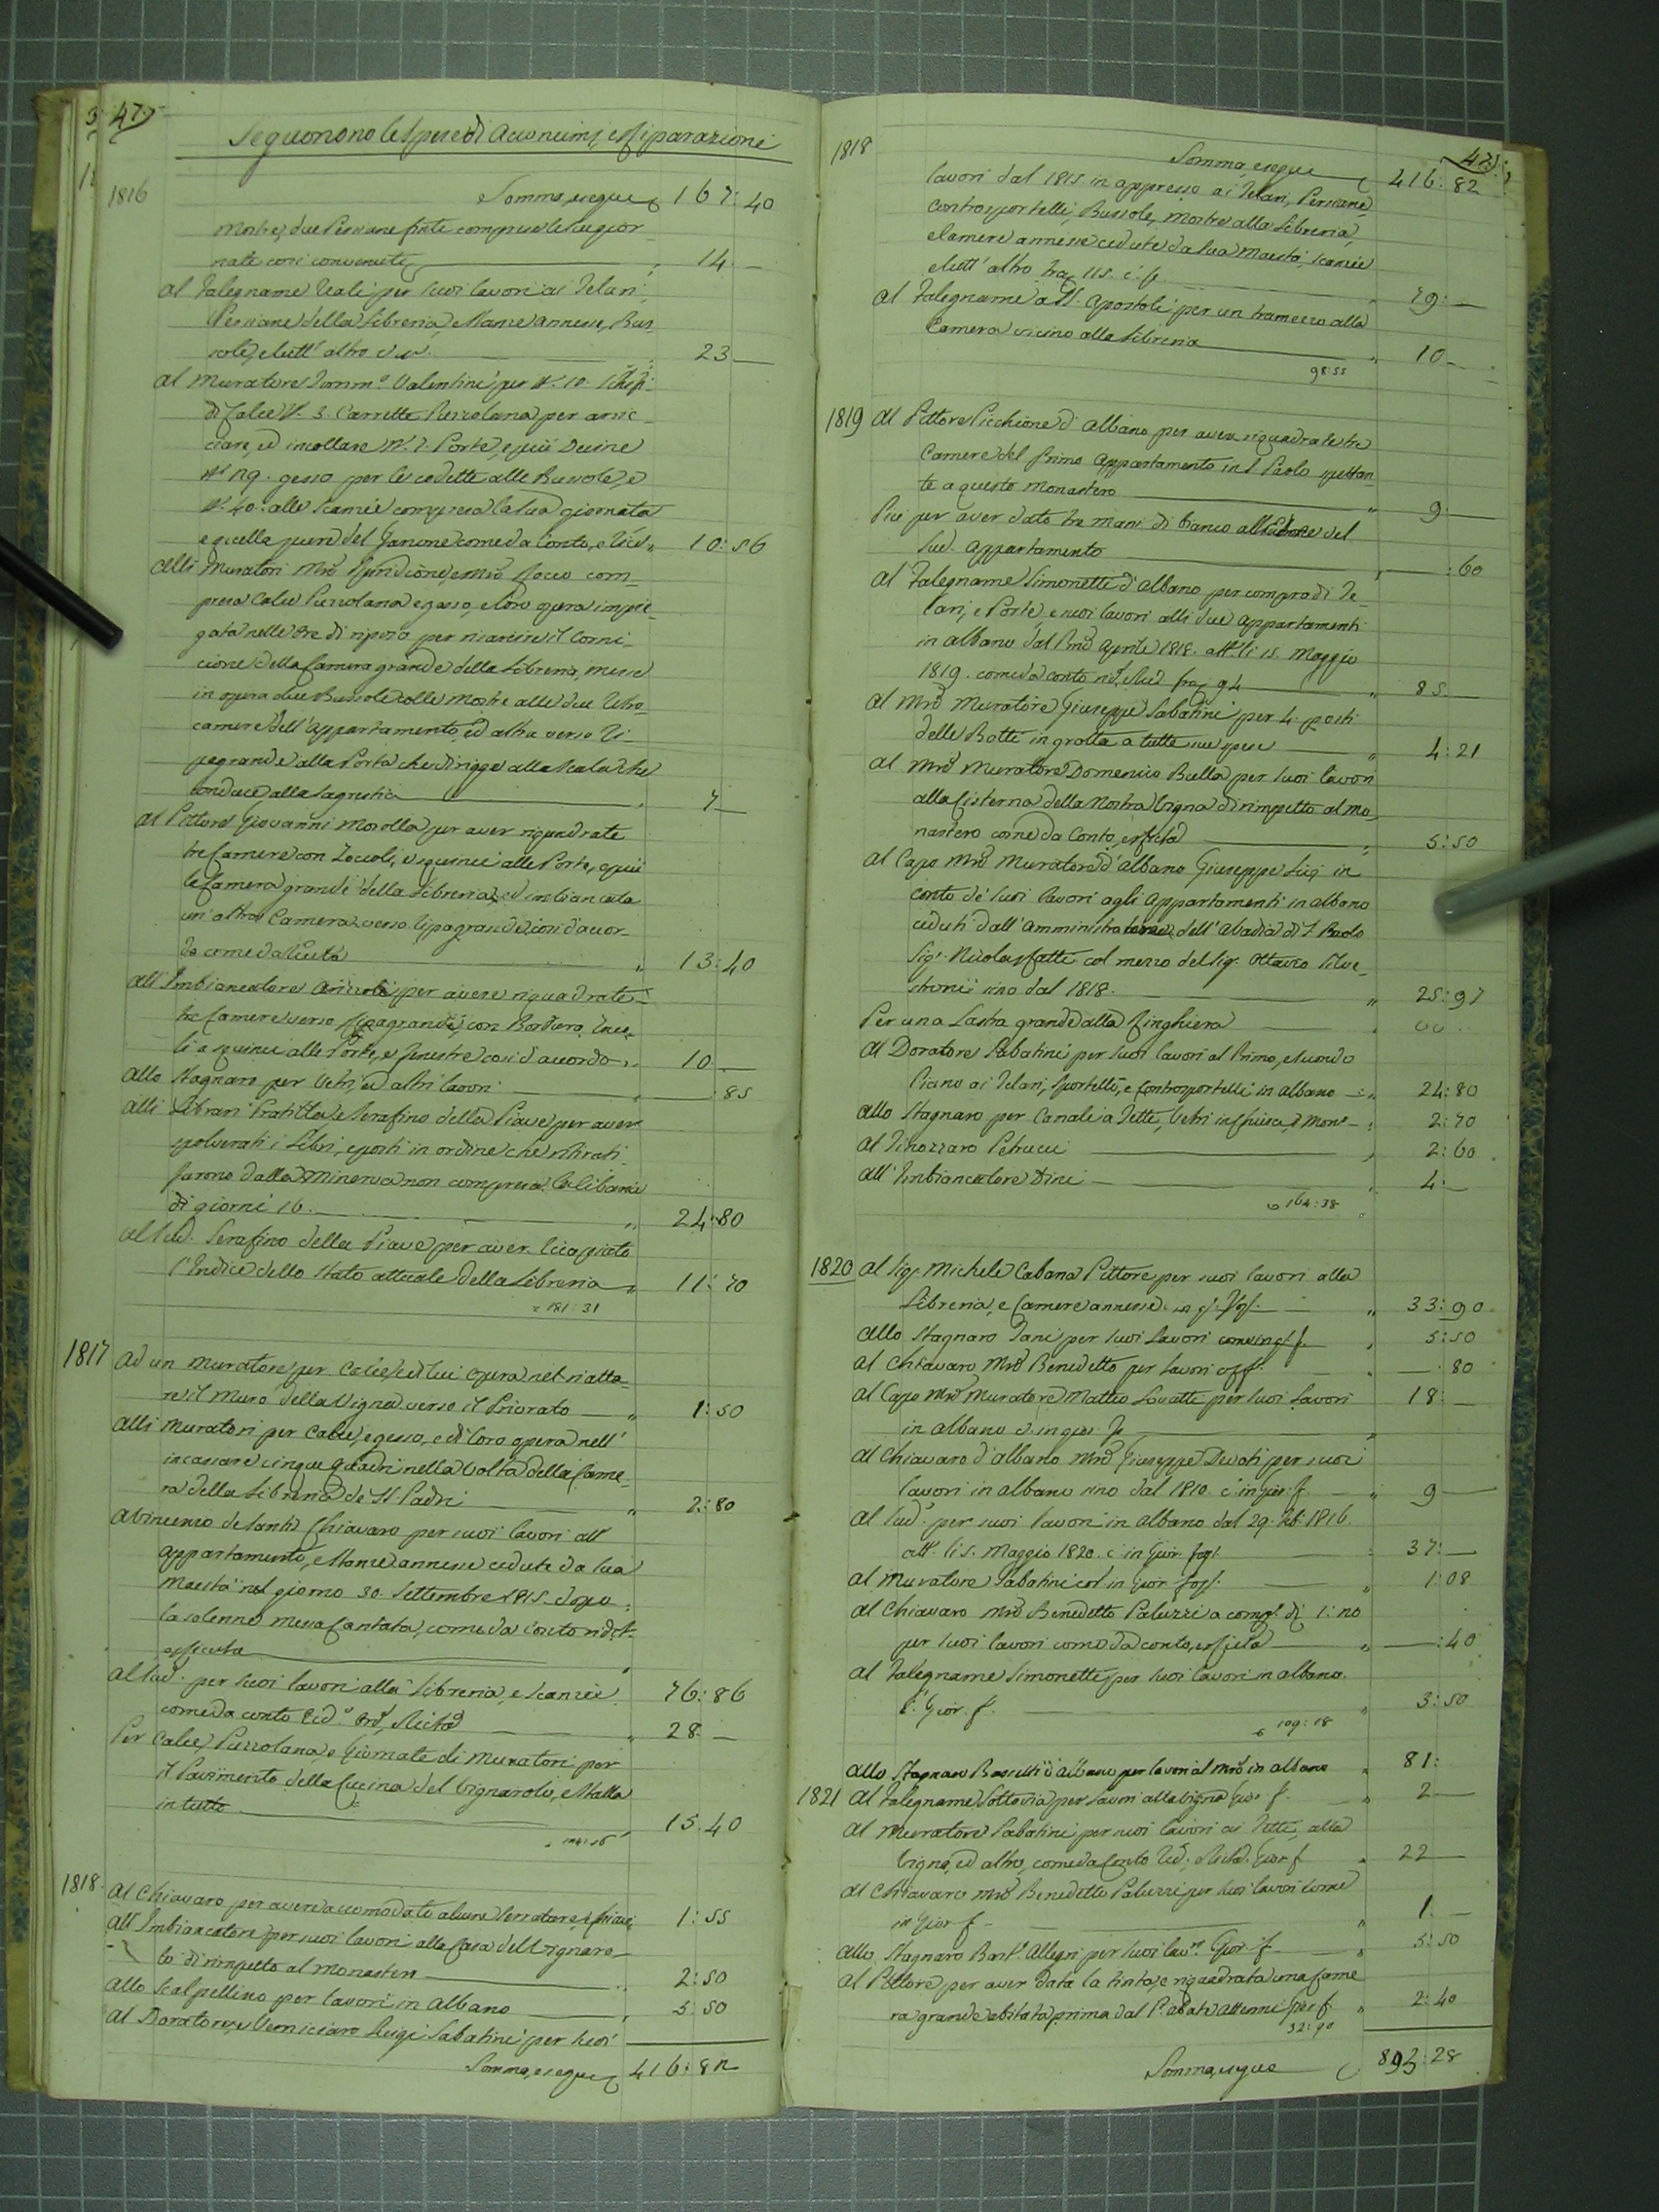 47
Seguonono le Spese di Acconcimi, e Riparazioni
1816
Somma, e segue 167:40
Mostre, due Persiane finte comprese le sue gior-
nate così convenute 14 —
Al Falegname Reali per suoi lavori ai Telari
Persiane della Libreria, e Stanze annesse, Bus-
sole, e tutt' altro 23 —
Al Muratore Domm.º Valentini per N. 10.
di Calce N. 3. Carrette Puzzolana per arric-
ciare, ed incollare N. 7. Porte, e più Decine
gesso per le cedette alle Bussole, e
N. 40. alle Scanzie compresa la sua giornata
e quella pure del Garzone come da Conto, e 10:56
Alli Muratori Mrõ e Mrõ Rocco com-
presa Calce Puzzolana e gesso, e loro opera impie-
gata nelle Ore di riposo per risarcire il Corni-
cione della Camera grande della Libreria, messe
in opera due Bussole colle Mostre alle due Retro-
camere dell' Appartamento, ed altra verso Ri-
pagrande alla Porta che dirigge alla Scala che
conduce alla Sagrestia 7 —
Al Pittore Giovanni Morolla per aver riquadrate
tre Camere con Zoccoli, e squinci alle Porte, e più
la Camera grande della Libreria, ed imbiancata
un' altra Camera verso Ripagrande così d'accor-
do come da Ricevta 13:40
All' Imbiancatore per avere riquadrate
tre Camere verso Ripagrande, con Bordura, Zocco-
li e squinci alle Porte, e fenestre così d'accordo 10 —
Allo Stagnaro per Vetri, ed altri lavori :85
Alli Librari Pratilla e Serafino della Piave per aver
spolverati i Libri, e posti in ordine che ritirati
furono dalla Minerva non compresa la Cibaria
di giorni 16. 24:80
Al sud. Serafino della Piave per aver ricopiato
l'Indice dello Stato attuale della Libreria 11:70
= 181:31
1817 Ad un Muratore per Calce, e di lui opera nel riatta-
re il Muro della Vigna verso il Priorato 1:50
Alli Muratori per Calce, e gesso, e di loro opera nell'
incassare cinque Quadri nella Volta della Came-
ra della Libreria de' SS. Padri 2:80
A Vincenzo de Santis Chiavaro per suoi lavori all'
Appartamento, e Stanze annesse cedute da sua
Maestà nel giorno 30. Settembre 1815. dopo
la solenne Messa Cantata, come da Conto rid.
e Ricevta
Al sud. per suoi lavori alla Libreria, e Scanzie 76:86
come da conto rid.º Ricta 28 —
Per Calce, Puzzolana, e Giornate di Muratori per
il Pavimento della Cucina del Vignarolo, e Stalla
in tutto 15.40
1818. Al Chiavaro per avere accomodato alcune serrature, e chiavi 1:55
All' Imbiancatore per suoi lavori alla Casa del Vignaro-
lo di rimpetto al Monastero 2:50
Allo Scalpellino per lavori in Albano 5.50
Al Doratore, e Verniciaro Luigi Sabatini per suoi
Somma, e segue 416:82
1818
Somma, e segue 416:82
lavori dal 1815. in appresso ai Telari, Persiane,
Controsportelli, Bussole, Mostre alla Libreria,
e Camere annesse cedute da Sua Maestà, Scanzie
e tutt' altro 79: —
Al Falegname a SS. Apostoli, per un tramezzo alla
Camera vicino alla Libreria 10 —
98:55
1819 Al Pittore Picchione d' Albano per aver riquadrate tre
Camere del Primo Appartamento in S. Paolo spettan-
te a questo Monastero 9 —
Più per aver dato tre mani di bianco all' del
Sud. Appartamento — :60
Al Falegname Simonetti d' Albano per compra di Te-
lari, e Porte, e suoi lavori alli due Appartamenti
in Albano dal Pmõ Aprile 1818. all. li 15. Maggio
1819. come da conto rid. Ricd 94 85 —
Al Mrõ Muratore Giuseppe Sabatini per 4. posti
delle Botti in grotta a tutte sue spese 4:21
Al Mrõ Muratore Domenico Bulla per suoi lavori
alla Cisterna della Nostra Vigna di rimpetto al Mo-
nastero come da Conto, e Ricta 5:50
Al Capo Mrõ Muratore d' Albano Giuseppe in
conto de' suoi lavori agli Appartamenti in Albano
ceduti dall' Amministratore dell' Abadia di S. Paolo
Sig. Nicola, fatti col mezzo del Sig. Ottavio Silve-
stroni sino dal 1818. 25:97
Per una Lastra grande alla Ringhiera
Al Doratore Sabatini per suoi lavori al Primo, e secondo
Piano ai Telari, Sportelli, e Controsportelli in Albano 24:80
Allo Stagnaro per Canali a Tetti, Vetri in Chiesa, e Mon. 2:70
Al Tinozzaro Petrucci 2:60
All' Imbiancatore Dini 4: —
164:38
1820 Al Sig. Michele Cabana Pittore per suoi lavori alla
Libreria, e Camere annesse 33:90
Allo Stagnaro Tani per suoi Lavori 5:50
Al Chiavaro Mrõ Benedetto per lavori — 80
Al Capo Mrõ Muratore Matteo Lovatti per suoi Lavori 18: —
in Albano
Al Chiavaro d' Albano Mrõ Giuseppe Devoti per suoi
lavori in Albano sino dal 1810. c. in Gior. f. 9 —
Al Sud. per suoi lavori in Albano dal 29. 1816.
all. li 5. Maggio 1820. c. in Gior. fogl. 37: —
Al Muratore Sabatini in Gior. fogl. 1:08
Al Chiavaro Mrõ Benedetto Paluzzi a comp. di
per suoi lavori come da conto, e ricta — :40
Al Falegname Simonetti per suoi lavori in Albano.
Gior. f. 3:50
109:18
Allo Stagnaro d' Albano per lavori al Mrõ in Albano 81:
1821 Al Falegname Sottovia per lavori alla Vigna Gior. f. 2 —
Al Muratore Sabatini per suoi lavori ai Tetti, alla
Vigna, ed altro, come da Conto Rid. Ricta. Gior. f. 22 —
Al Chiavaro Mrõ Benedetto Paluzzi per suoi lavori come
in Gior. f. 1. —
Allo Stagnaro Bart. Allegri per suoi lav.ri Gior. f. 5:50
Al Pittore per aver data la tinta, e riquadrata una Came-
ra grande abitata prima dal P. Abate 2:40
32:90
Somma, e segue 893:28